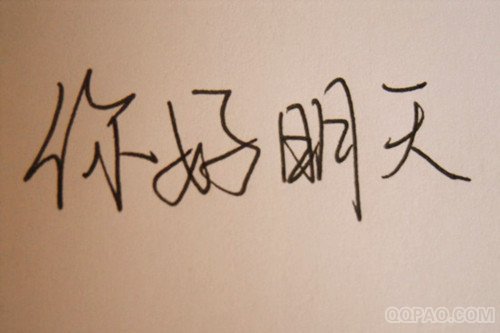 你好明天
QQPAO.COM